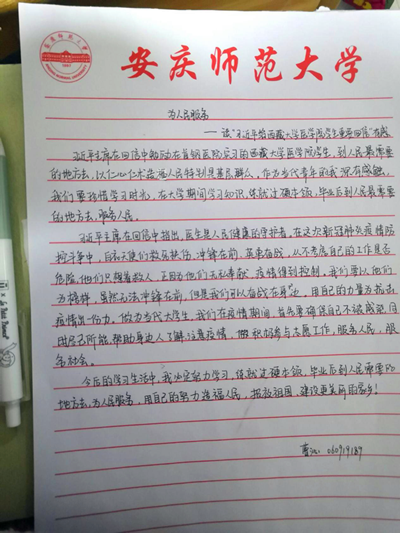 安庆师范大学
为人民服务
——读“习近平给西藏大学医学院学生重要回信”有感
习近平主席在回信中勉励在首钢医院实习的西藏大学医学院学生,到人民最需要
的地方去,以仁心仁术造福人民特别是基层群众。作为当代青年的我深有感触,
我们要珍惜学习时光,在大学期间学习知识,练就过硬本领,毕业后到人民最需要
的地方去,服务人民。
习近平主席在回信中指出,医生是人民健康的守护者,在这次新冠肺炎疫情防
控斗争中,白衣天使们救死扶伤,冲锋在前,英勇奋战,从不考虑自己的工作是否
危险,他们只想着救人,正因为他们无私奉献,疫情得到控制,我们要以他们
为榜样,虽然无法冲锋在前,但是我们可以奋战在身边,用自己的力量为抗击
疫情出一份力。做为当代大学生,我们在疫情期间,首先要确保自己不被感染,同
时尽己所能,帮助身边人了解注意疫情,做积极参与志愿工作,服务人民,服
务社会。
今后的学习生活中,我必定努力学习,练就过硬本领,毕业后到人民需要的
地方去,为人民服务,用自己的努力造福人民,报效祖国,建设更美丽的家乡!
060919189